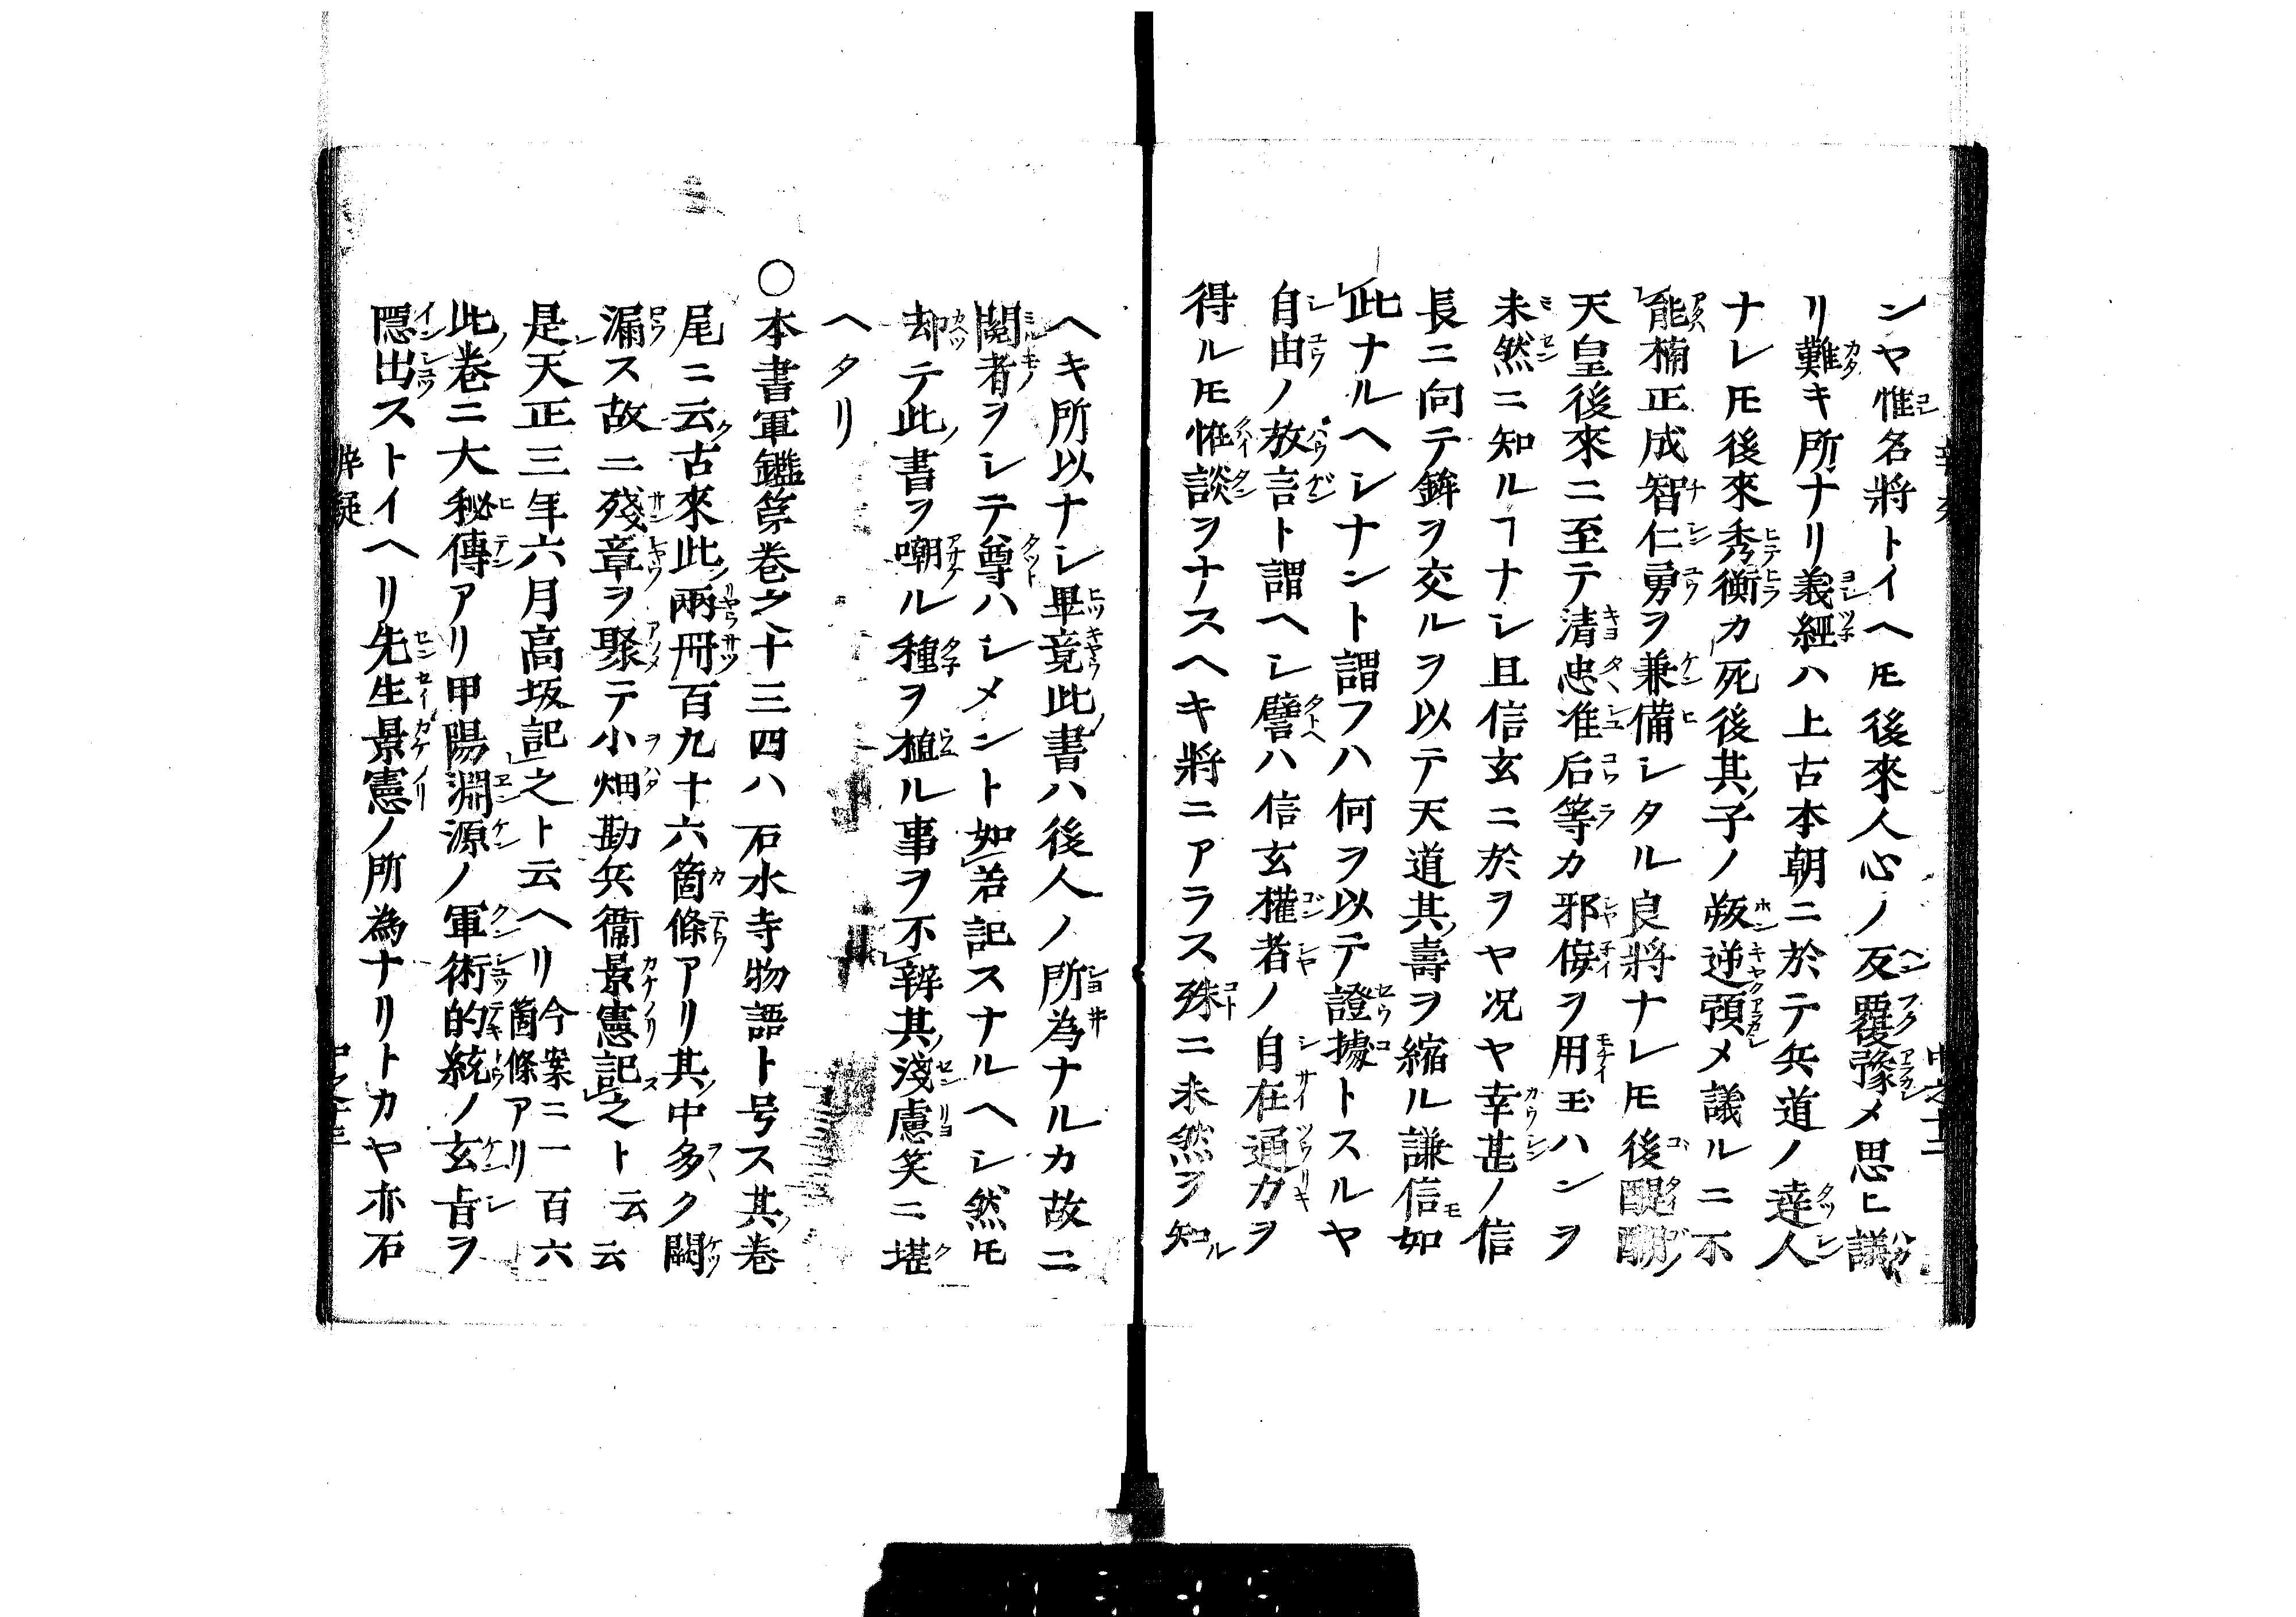 ンヤ惟名將トイヘ𪜈後來人心ノ反覆豫メ思ヒ議
リ難キ所ナリ義經ハ上古本朝ニ於テ兵道ノ達人
ナレ𪜈後來秀衡カ死後其子ノ叛逆預メ議ルニ不
能楠正成智仁勇ヲ兼備シタル良將ナレ𪜈後醍醐
天皇後來ニ至テ清忠准后等カ邪侫ヲ用玉ハンヲ
未然ニ知ルヿナシ且信玄ニ於ヲヤ况ヤ幸甚ノ信
長ニ向テ鉾ヲ交ルヲ以テ天道其壽ヲ縮ル謙信如
此ナルヘシナント謂フハ何ヲ以テ證據トスルヤ
自由ノ放言ト謂ヘシ譬ハ信玄權者ノ自在通力ヲ
得ル𪜈恠談ヲナスヘキ將ニアラス殊ニ未然ヲ知ル
ヘキ所以ナシ畢竟此書ハ後人ノ所為ナルカ故ニ
閲者ヲシテ尊ハシメント如若記スナルヘシ然𪜈
却テ此書ヲ嘲ル種ヲ植ル事ヲ不辨其淺慮笑ニ堪
ヘタリ
○本書軍鑑第卷之十三四ハ石水寺物語ト号ス其卷
尾ニ云古來此兩冊百九十六箇條アリ其中多ク闕
漏ス故ニ殘章ヲ聚テ小畑勘兵衞景憲記之ト云云
是天正三年六月高坂記之ト云ヘリ今案ニ一百六箇條アリ
此卷ニ大秘傳アリ甲陽淵源ノ軍術的統ノ玄旨ヲ
隱出ストイヘリ先生景憲ノ所為ナリトカヤ亦石
辨疑